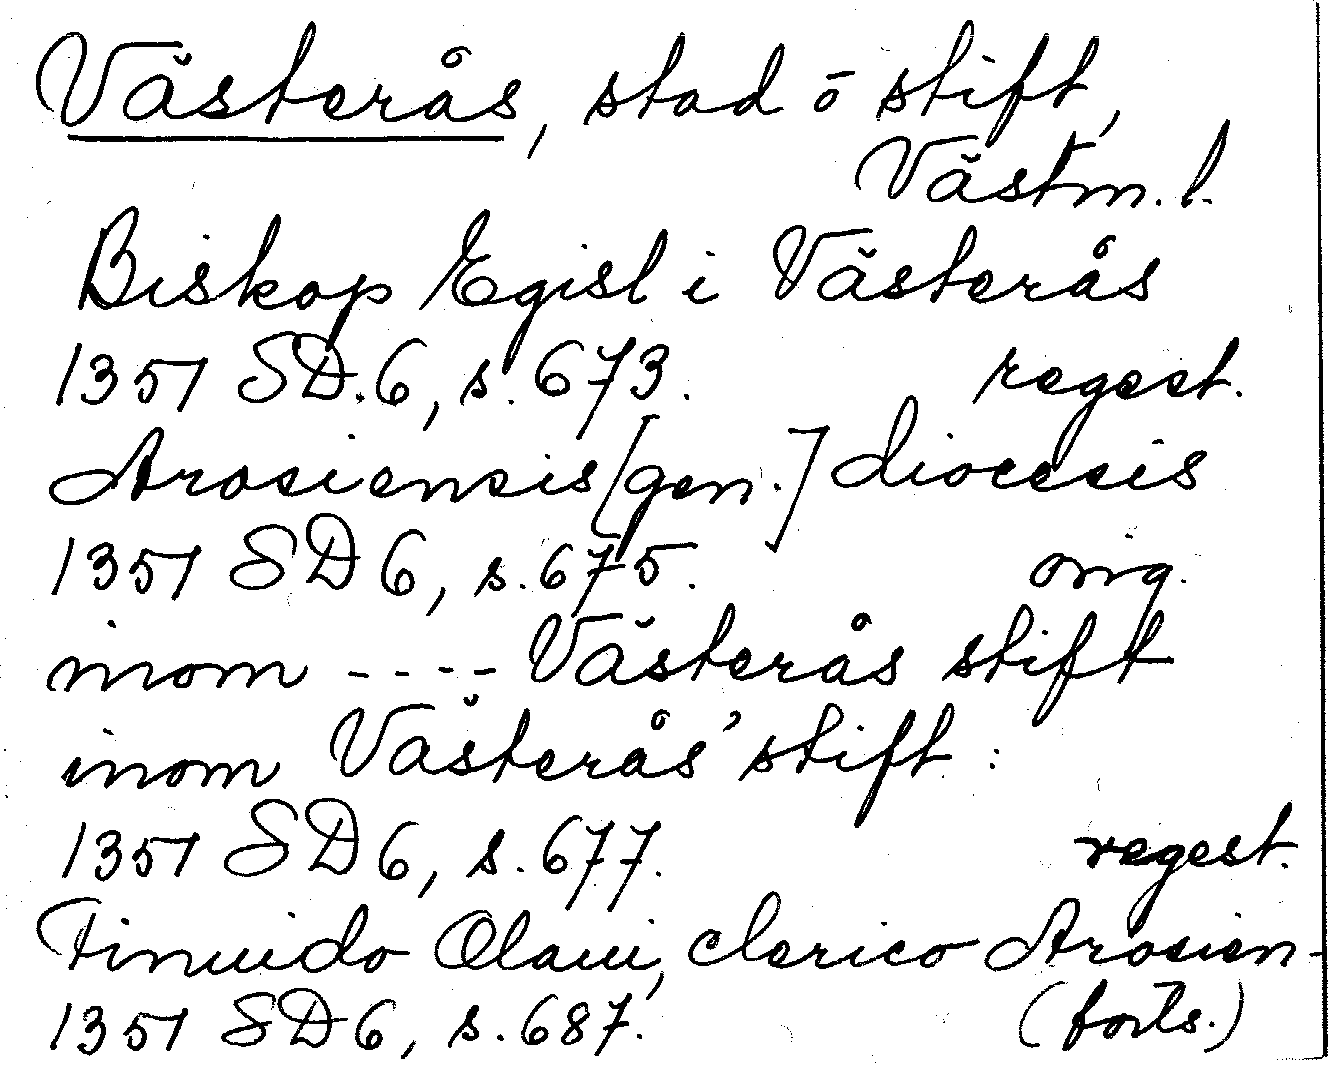 Västerås, stad o stift,
Västm. l.
Biskop Egisl i Västerås
1351 SD.6, s. 673. regest.
Arosiensis [gen.] diocesis
1351 SD 6, s. 675. orig.
inom - - - - Västerås stift
inom Västerås' stift:
1351 SD 6, s. 677. regest.
Finuido Olaui, clerico Arosien-
1351 SD 6, s. 687. (forts.)